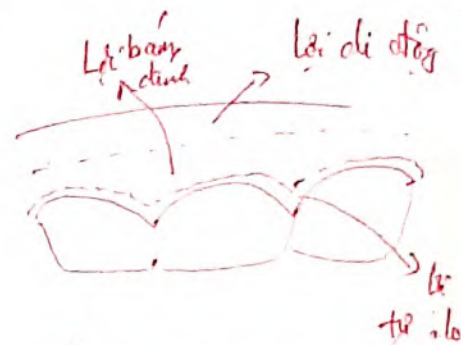 Lợi bám
dính
Lợi di động
Lợi
tự do